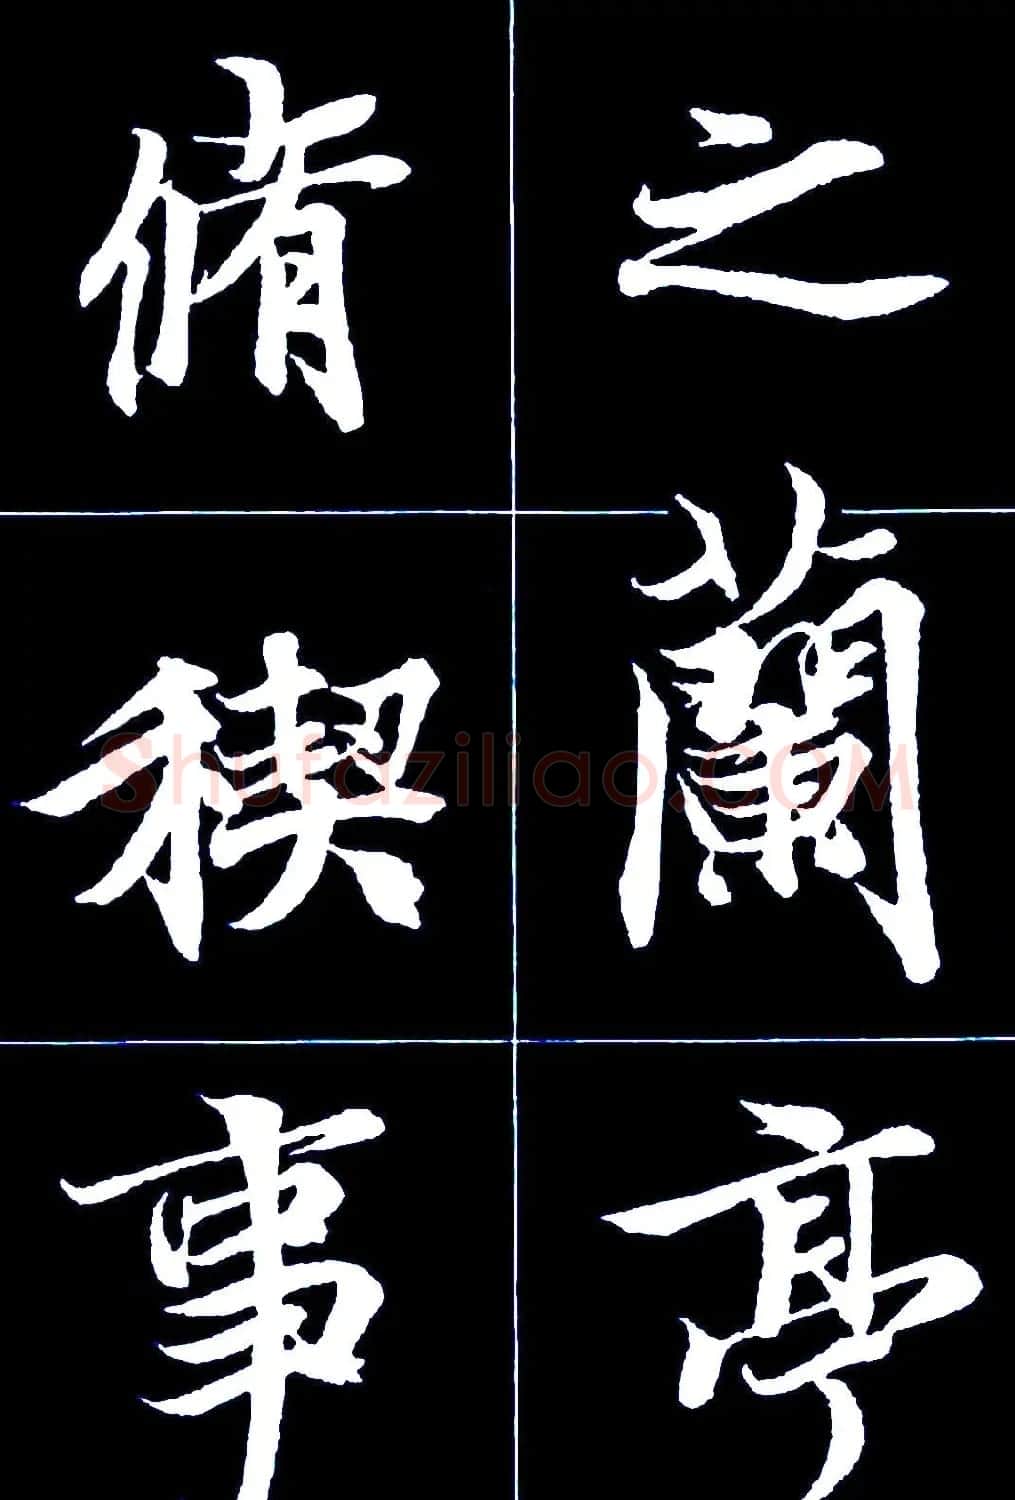 之蘭亭
脩稧事
Shufaziliao.COM